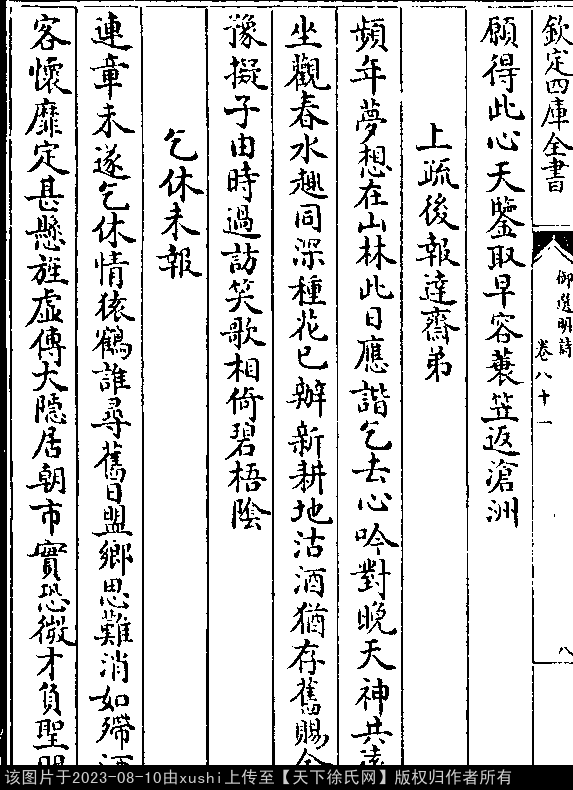 欽定四庫全書
御選明詩
卷八十一
八
願得此心天鑒取早容蓑笠返滄洲
上疏後報達齋弟
頻年夢想在山林此日應諧乞去心吟對晚天神共遠
坐觀春水趣同深種花已辦新耕地沽酒猶存舊賜金
豫擬子由時過訪笑歌相倚碧梧陰
乞休未報
連章未遂乞休情猿鶴誰尋舊日盟鄉思難消如殢酒
客懷靡定甚懸旌虛傳大隱居朝市實恐微才負聖明
该图片于2023-08-10由xushi上传至【天下徐氏网】版权归作者所有